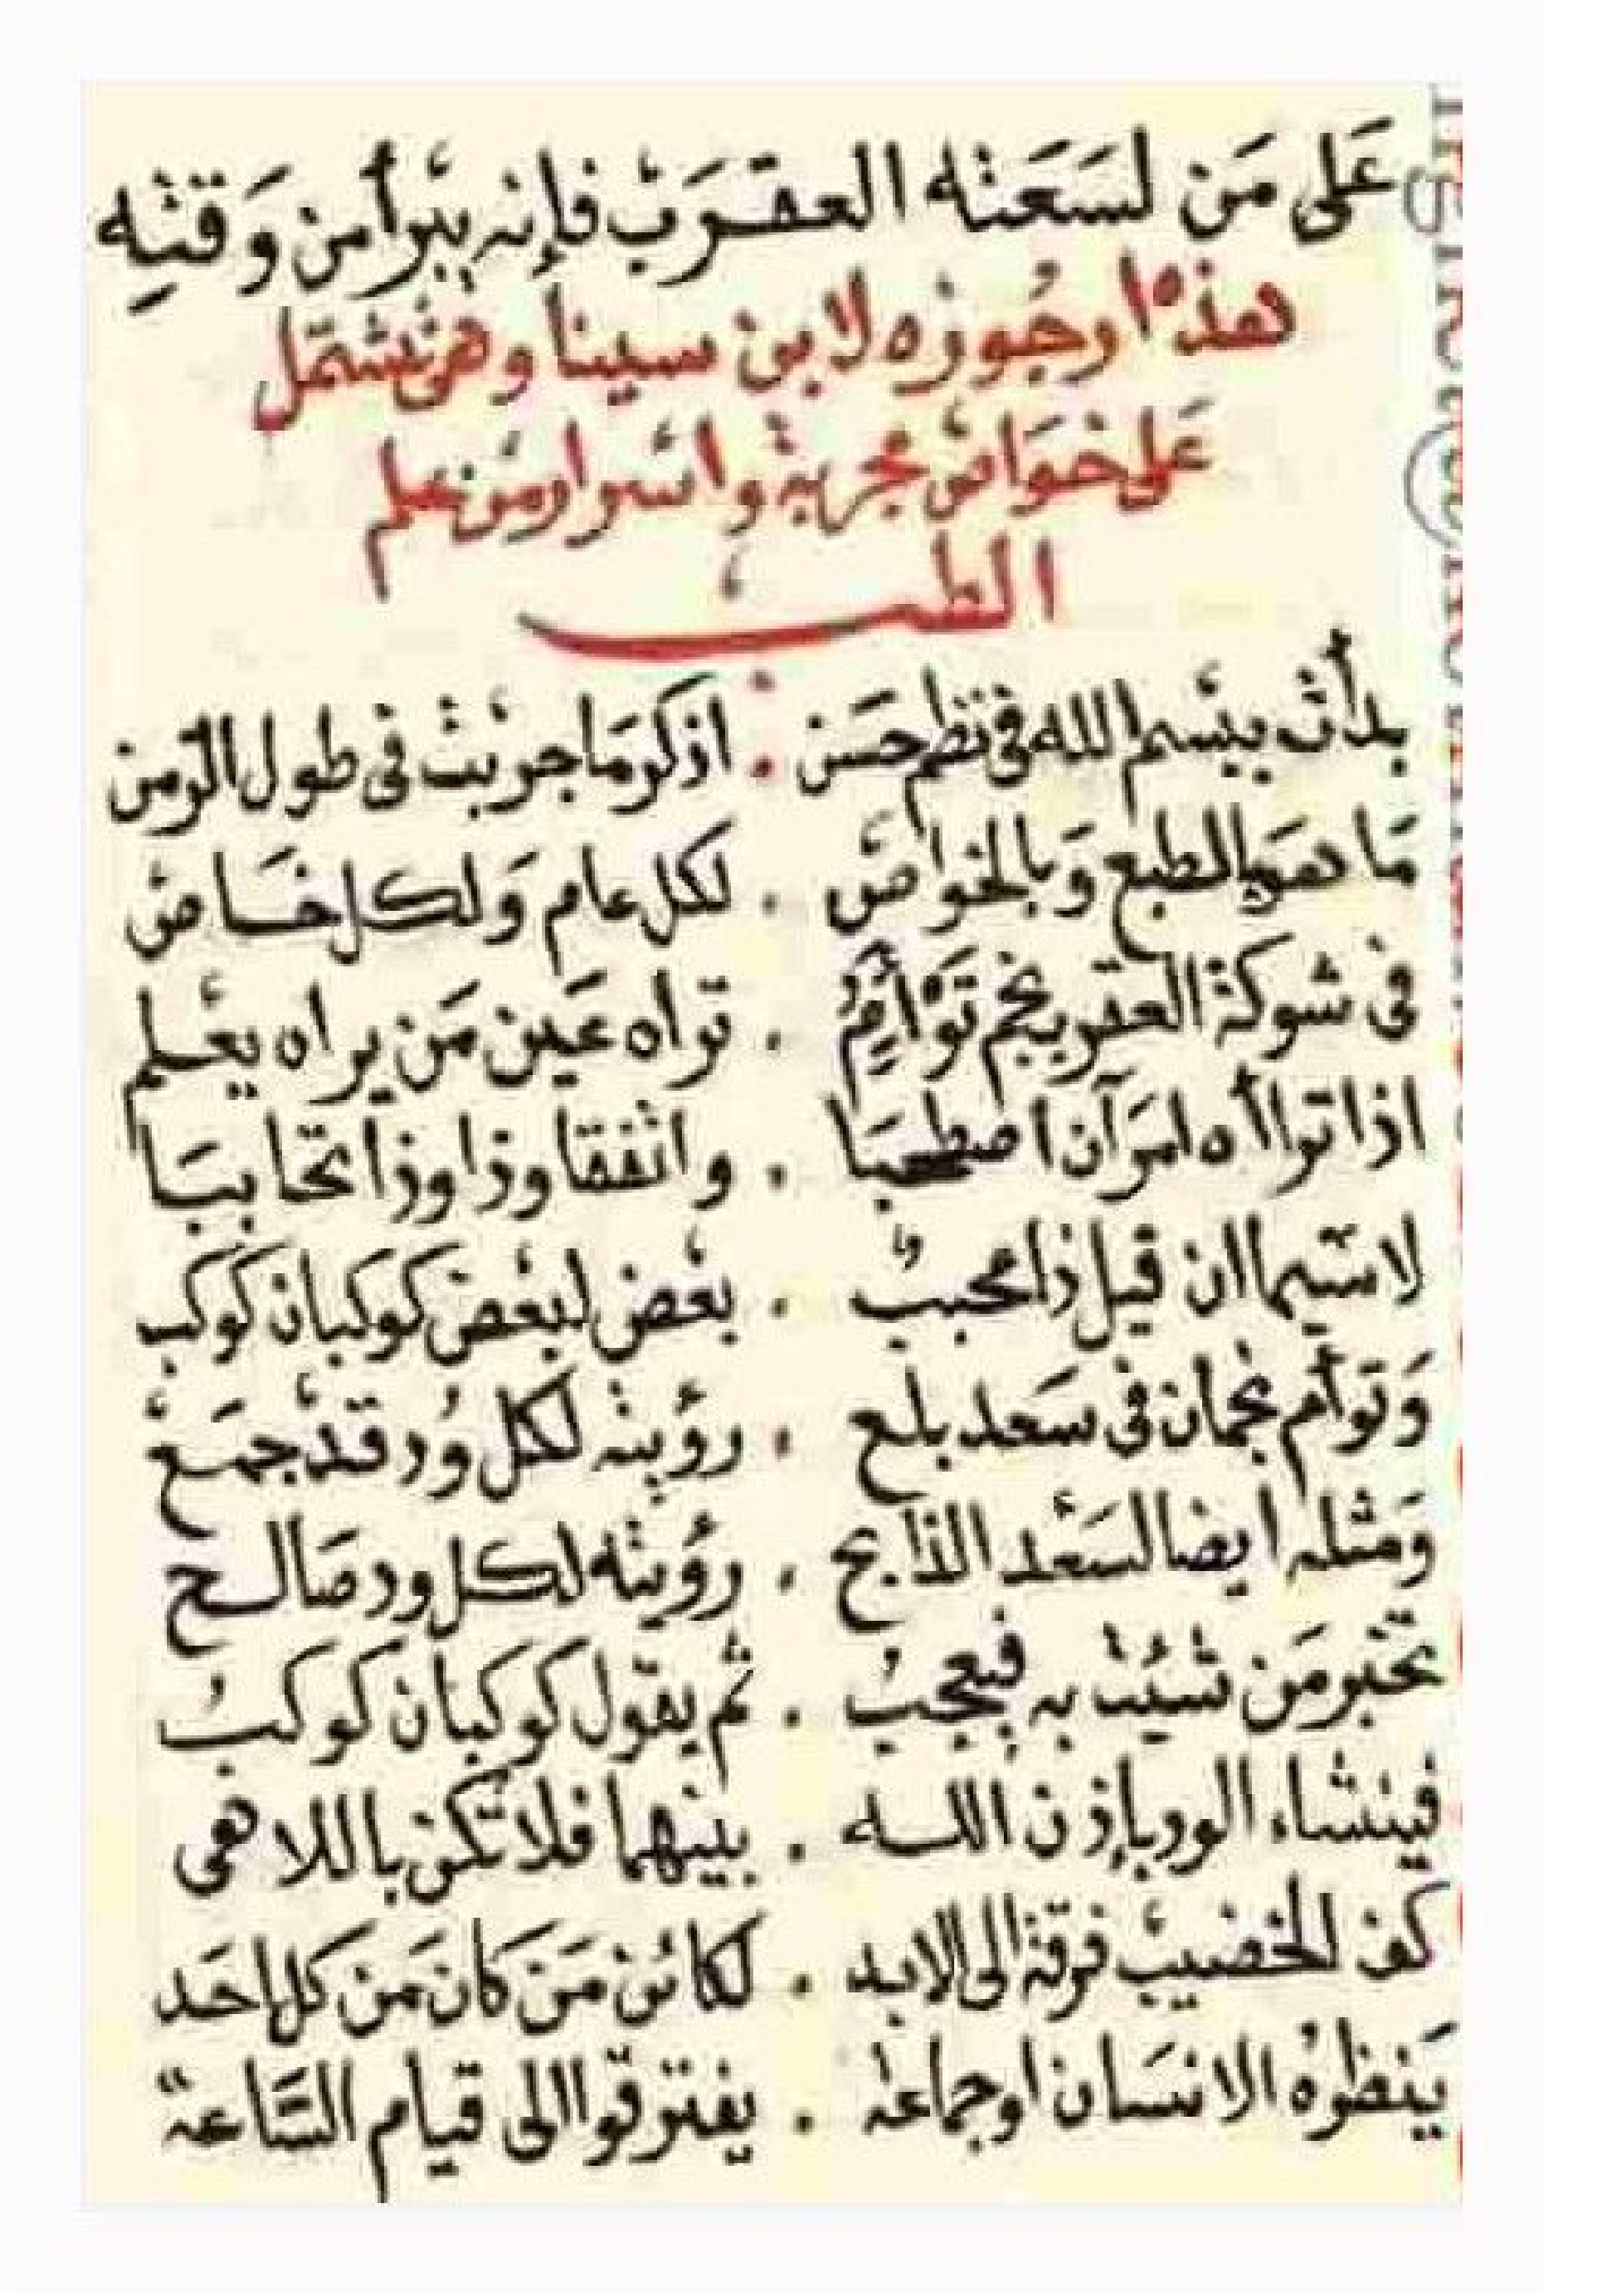 عَلى مَن لسَعَتْه العقرَبْ فإنه يبْرأ من وَقتِه
هذه ارجُوزه لابن سينا وهى تشتمل
عَلى خوَاصْ مجربة واسْرار من علم
الطب
بدأت ببسْم الله فى نظم حسَن . اذكر مَا جربْتْ فى طول الزمن
مَا هو بالطبع وَبالخواصْ . لكل عام وَلكل خَاصْ
فى شوكة العقرب نجم تَوَأمُ . تراه عَين مَن يراه يعْلم
اذا تراأه امرَآن اصطحبَا . واتْفقا وذا وذا تحاببَا
لا سيّما ان قيل ذا محببُ . بعْض لبعْض كوكبان كوكب
وَتوأم نجمان فى سَعد بلع . رؤيته لكل وُد قدْ جمَعْ
وَمثله ايضا لسَعْد الذابح . رؤيتْه لكل ود صَالح
تخبر مَن شئت به فيعجبُ . ثم يقول كوكبان كوكبُ
فينشاء الود بإذن الله . بينهما فلا تكن باللاهى
كف الخضيبْ فرقة الى الابد . لكائن مَن كان مَن كل احَد
يَنظرهُ الانسَان او جماعه . يفترقوا الى قيام السَّاعة